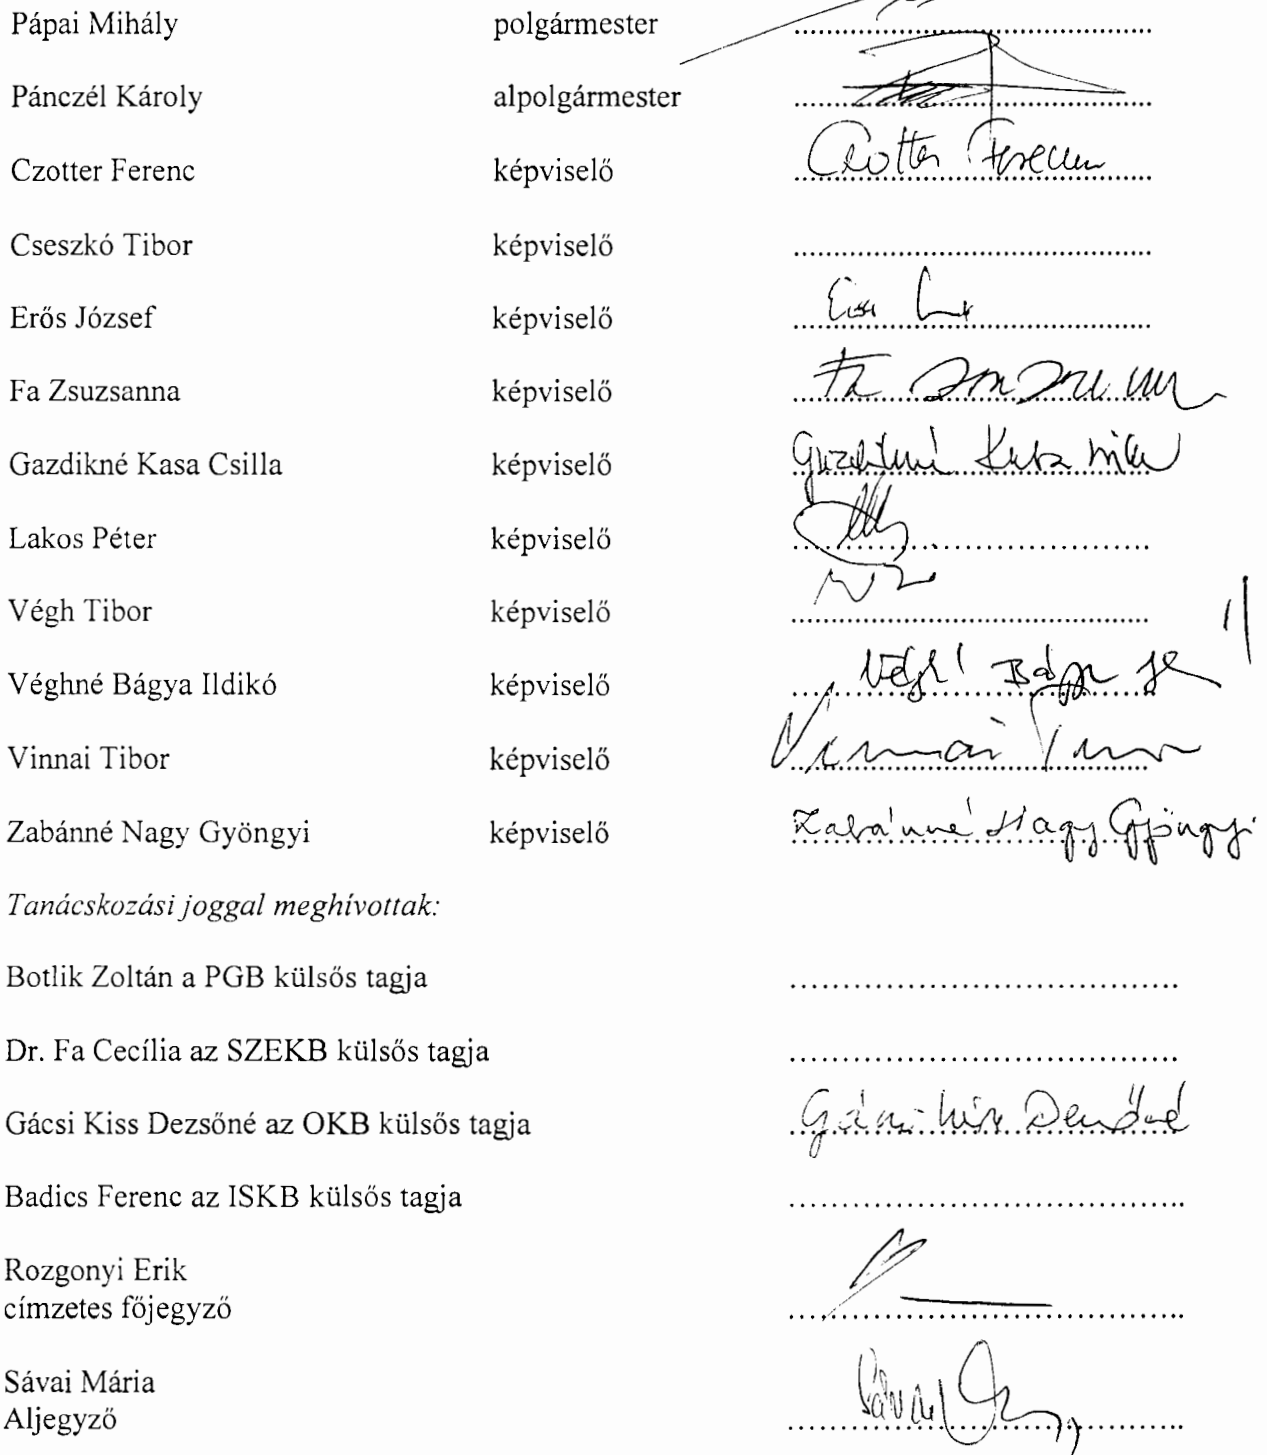 Pápai Mihály polgármester ..........
Pánczél Károly alpolgármester ..........
Czotter Ferenc képviselő Czotter Ferenc
Cseszkó Tibor képviselő ..........
Erős József képviselő ..........
Fa Zsuzsanna képviselő Fa Zsuzsanna
Gazdikné Kasa Csilla képviselő Gazdikné Kasa Csilla
Lakos Péter képviselő ..........
Végh Tibor képviselő ..........
Véghné Bágya Ildikó képviselő ..........
Vinnai Tibor képviselő Vinnai Tibor
Zabánné Nagy Gyöngyi képviselő Zabánné Nagy Gyöngyi
Tanácskozási joggal meghívottak:
Botlik Zoltán a PGB külsős tagja ..........
Dr. Fa Cecília az SZEKB külsős tagja ..........
Gácsi Kiss Dezsőné az OKB külsős tagja Gácsi Kiss Dezsőné
Badics Ferenc az ISKB külsős tagja ..........
Rozgonyi Erik
címzetes főjegyző ..........
Sávai Mária
Aljegyző ..........